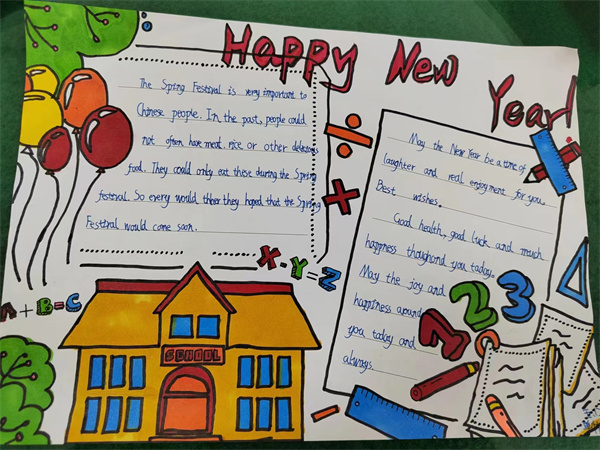 Happy New Year!
The Spring Festival is very important to
Chinese people. In the past, people could
not often have meat, rice or other delicious
food. They could only eat these during the Spring
festival. So every would they hoped that the Spring
Festival would come soon.
May the New Year be a time of
laughter and real enjoyment for you.
Best wishes.
Good health, good luck and much
happiness you today.
May the joy and
happiness around
you today and
always.
÷
×
X·Y=Z
A+B=C
SCHOOL
123